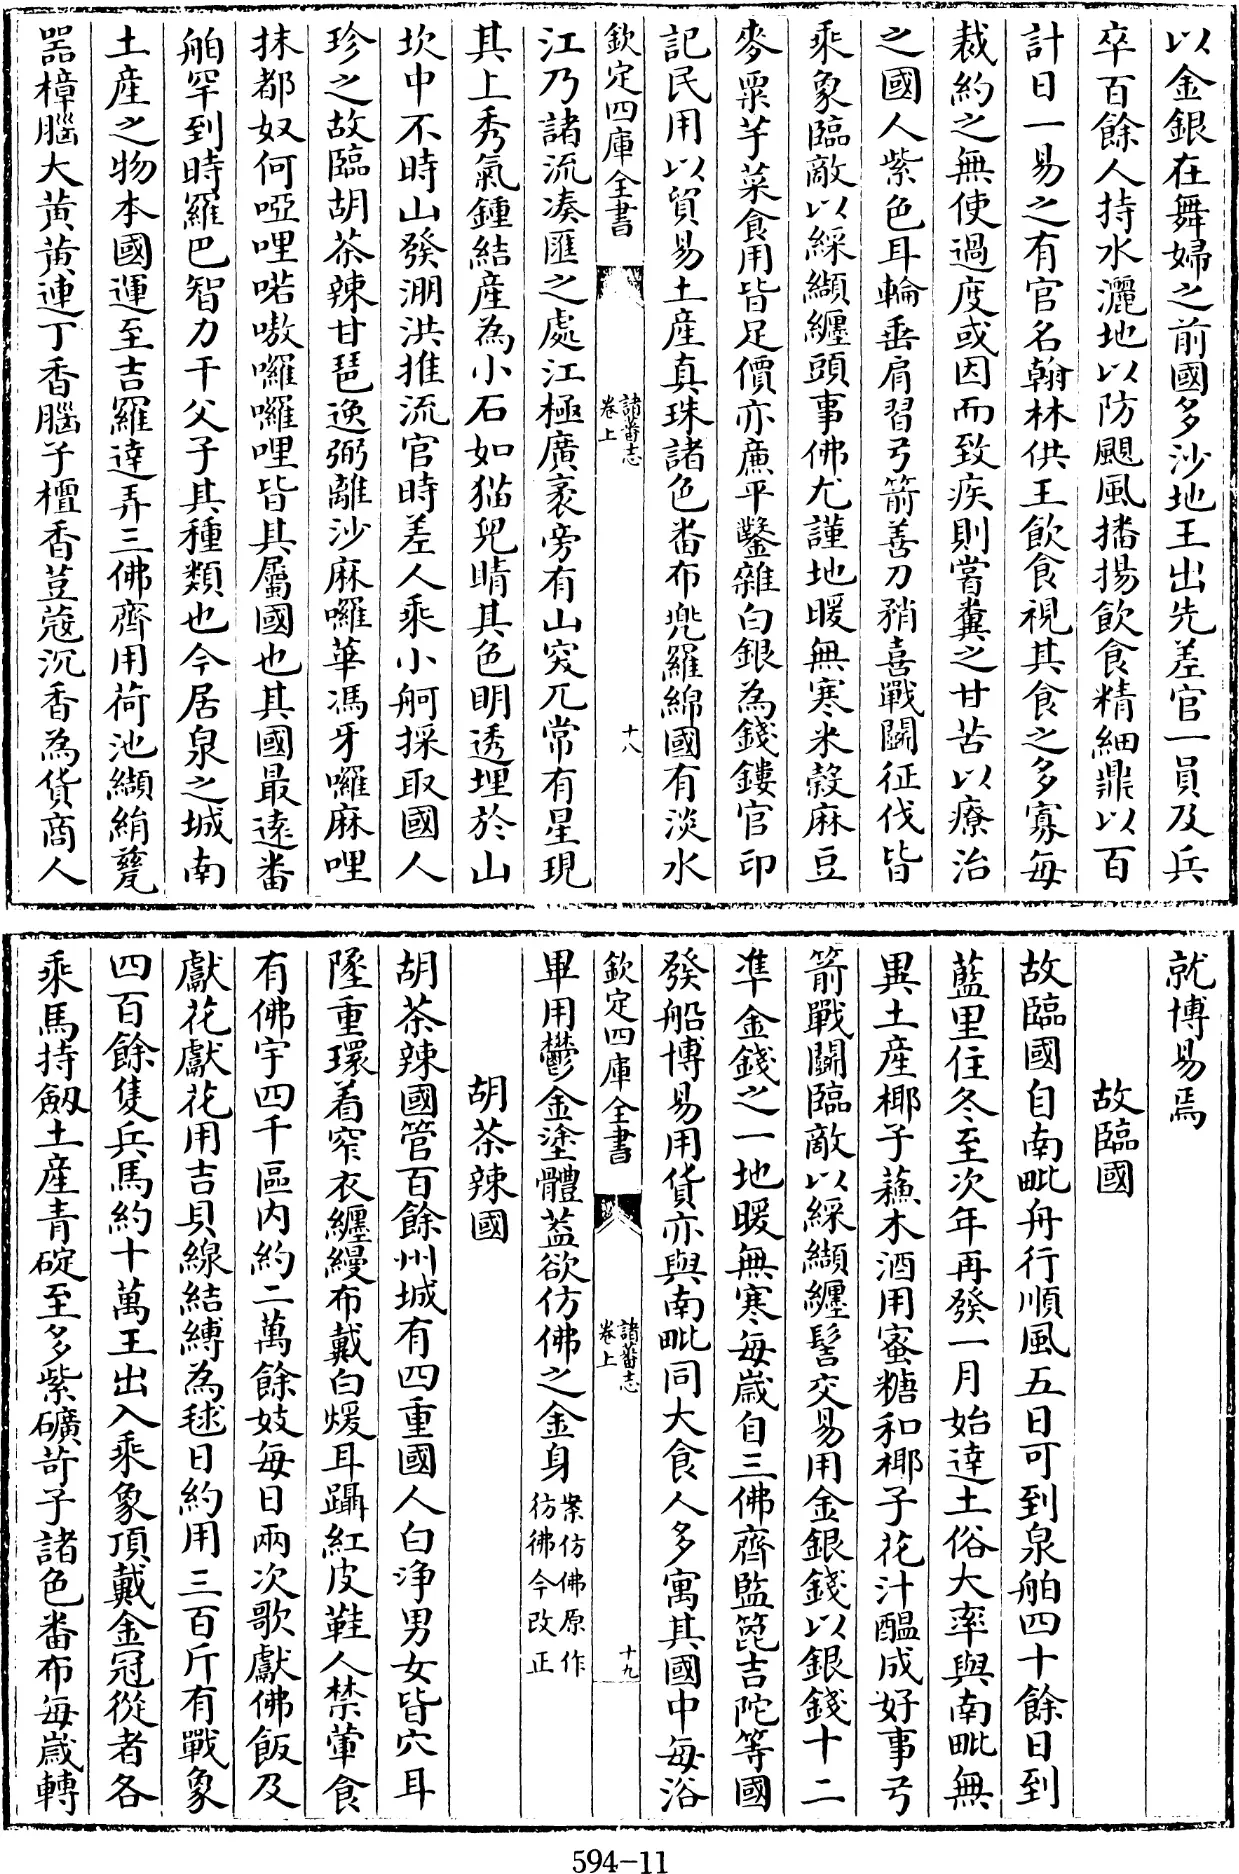 以金銀在舞婦之前國多沙地王出先差官一員及兵
卒百餘人持水灑地以防颶風播揚飲食精細鼎以百
計日一易之有官名翰林供王飲食視其食之多寡每
裁約之無使過度或因而致疾則嘗糞之甘苦以療治
之國人紫色耳輪垂肩習弓箭善刀矟喜戰鬭征伐皆
乘象臨敵以綵纈纏頭事佛尤謹地暖無寒米穀麻豆
麥粟芋菜食用皆足價亦廉平鑿雜白銀為錢鏤官印
記民用以貿易土産真珠諸色番布兠羅綿國有淡水
欽定四庫全書
諸蕃志
卷上
十八
江乃諸流湊匯之處江極廣袤旁有山突兀常有星現
其上秀氣鍾結産為小石如猫兒睛其色明透埋於山
坎中不時山發淜洪推流官時差人乘小舸採取國人
珍之故臨胡茶辣甘琶逸弼離沙麻囉華馮牙囉麻哩
抹都奴何啞哩喏嗷囉囉哩皆其屬國也其國最逺番
舶罕到時羅巴智力干父子其種類也今居泉之城南
土産之物本國運至吉羅達弄三佛齊用荷池纈絹甆
噐樟腦大黄黄連丁香腦子檀香荳蔻沉香為貨商人
就博易焉
故臨國
故臨國自南毗舟行順風五日可到泉舶四十餘日到
藍里住冬至次年再發一月始達土俗大率與南毗無
異土産椰子蘓木酒用蜜糖和椰子花汁醖成好事弓
箭戰鬭臨敵以綵纈纏髻交易用金銀錢以銀錢十二
凖金錢之一地暖無寒每歳自三佛齊監篦吉陀等國
發船博易用貨亦與南毗同大食人多寓其國中每浴
欽定四庫全書
諸蕃志
卷上
十九
畢用鬱金塗體葢欲仿佛之金身案仿佛原作
彷彿今改正
胡茶辣國
胡茶辣國管百餘州城有四重國人白浄男女皆穴耳
墜重環着窄衣纏縵布戴白煖耳躡紅皮鞋人禁葷食
有佛宇四千區内約二萬餘妓每日兩次歌獻佛飯及
獻花獻花用吉貝線結縛為毬日約用三百斤有戰象
四百餘隻兵馬約十萬王出入乘象頂戴金冠從者各
乘馬持劔土産青碇至多紫礦苛子諸色番布每歳轉
594-11